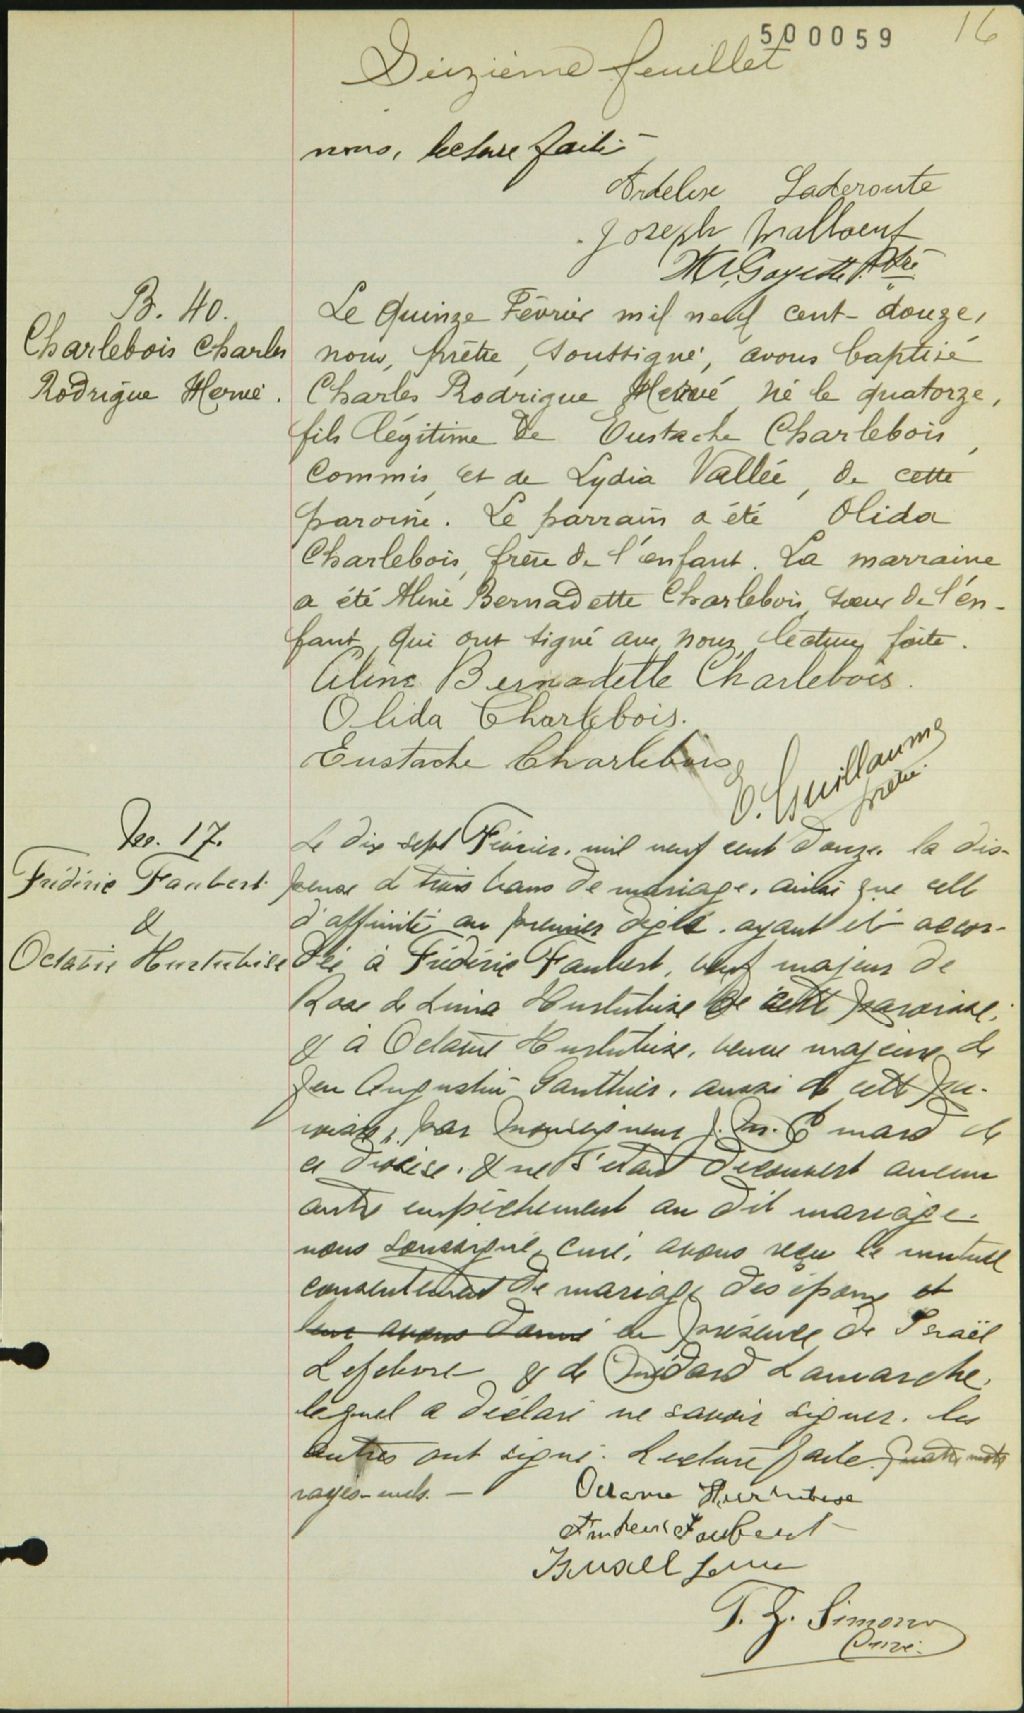 500059
16
Seizième feuillet
nous, lecture faite
Ardelise Laderoute
Joseph
Ptre
B. 40.
Charlebois Charles
Rodrigue Hervé.
Le quinze Février mil neuf cent douze,
nous, prêtre, soussigné, avons baptisé
Charles Rodrigue Hervé, né le quatorze,
fils légitime de Eustache Charlebois,
Commis, et de Lydia Vallée, de cette
paroisse. Le parrain a été Olida
Charlebois, frère de l'enfant. La marraine
a été Aline Bernadette Charlebois, soeur de l'en-
fant, qui ont signé avec nous, lecture faite.
Aline Bernadette Charlebois.
Olida Charlebois.
Eustache Charlebois
E. Guillaume
prêtre.
M. 17.
Frédéric Faubert
&
Octavie Hurtubise
Le dix sept Février, mil neuf cent douze, la dis-
pense de trois bans de mariage, ainsi que celle
d'affinité au premier degré, ayant été accor-
dée à Frédéric Faubert, veuf majeur de
Rose de Lima Hurtubise de cette paroisse;
& à Octavie Hurtubise, veuve majeure de
feu Augustin Gauthier, aussi de cette pa-
roisse, par Monseigneur J. M. Emard de
ce diocèse, & ne s'étant découvert aucun
autre empêchement au dit mariage,
nous soussigné, curé, avons reçu le mutuel
consentement de mariage des époux et
leur avons donné en présence de Israël
Lefebvre & de Médard Lamarche,
lequel a déclaré ne savoir signer. les
autres ont signé. Lecture faite. Quatre mots
rayés nuls. —
Octavie Hurtubise
Frederic Faubert
T. Z. Simon
Curé.